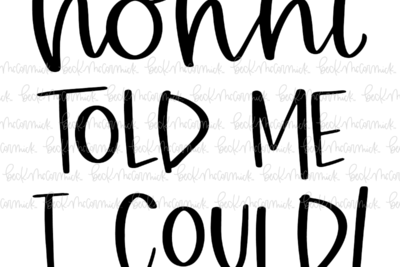 nonni
TOLD ME
I COULD!